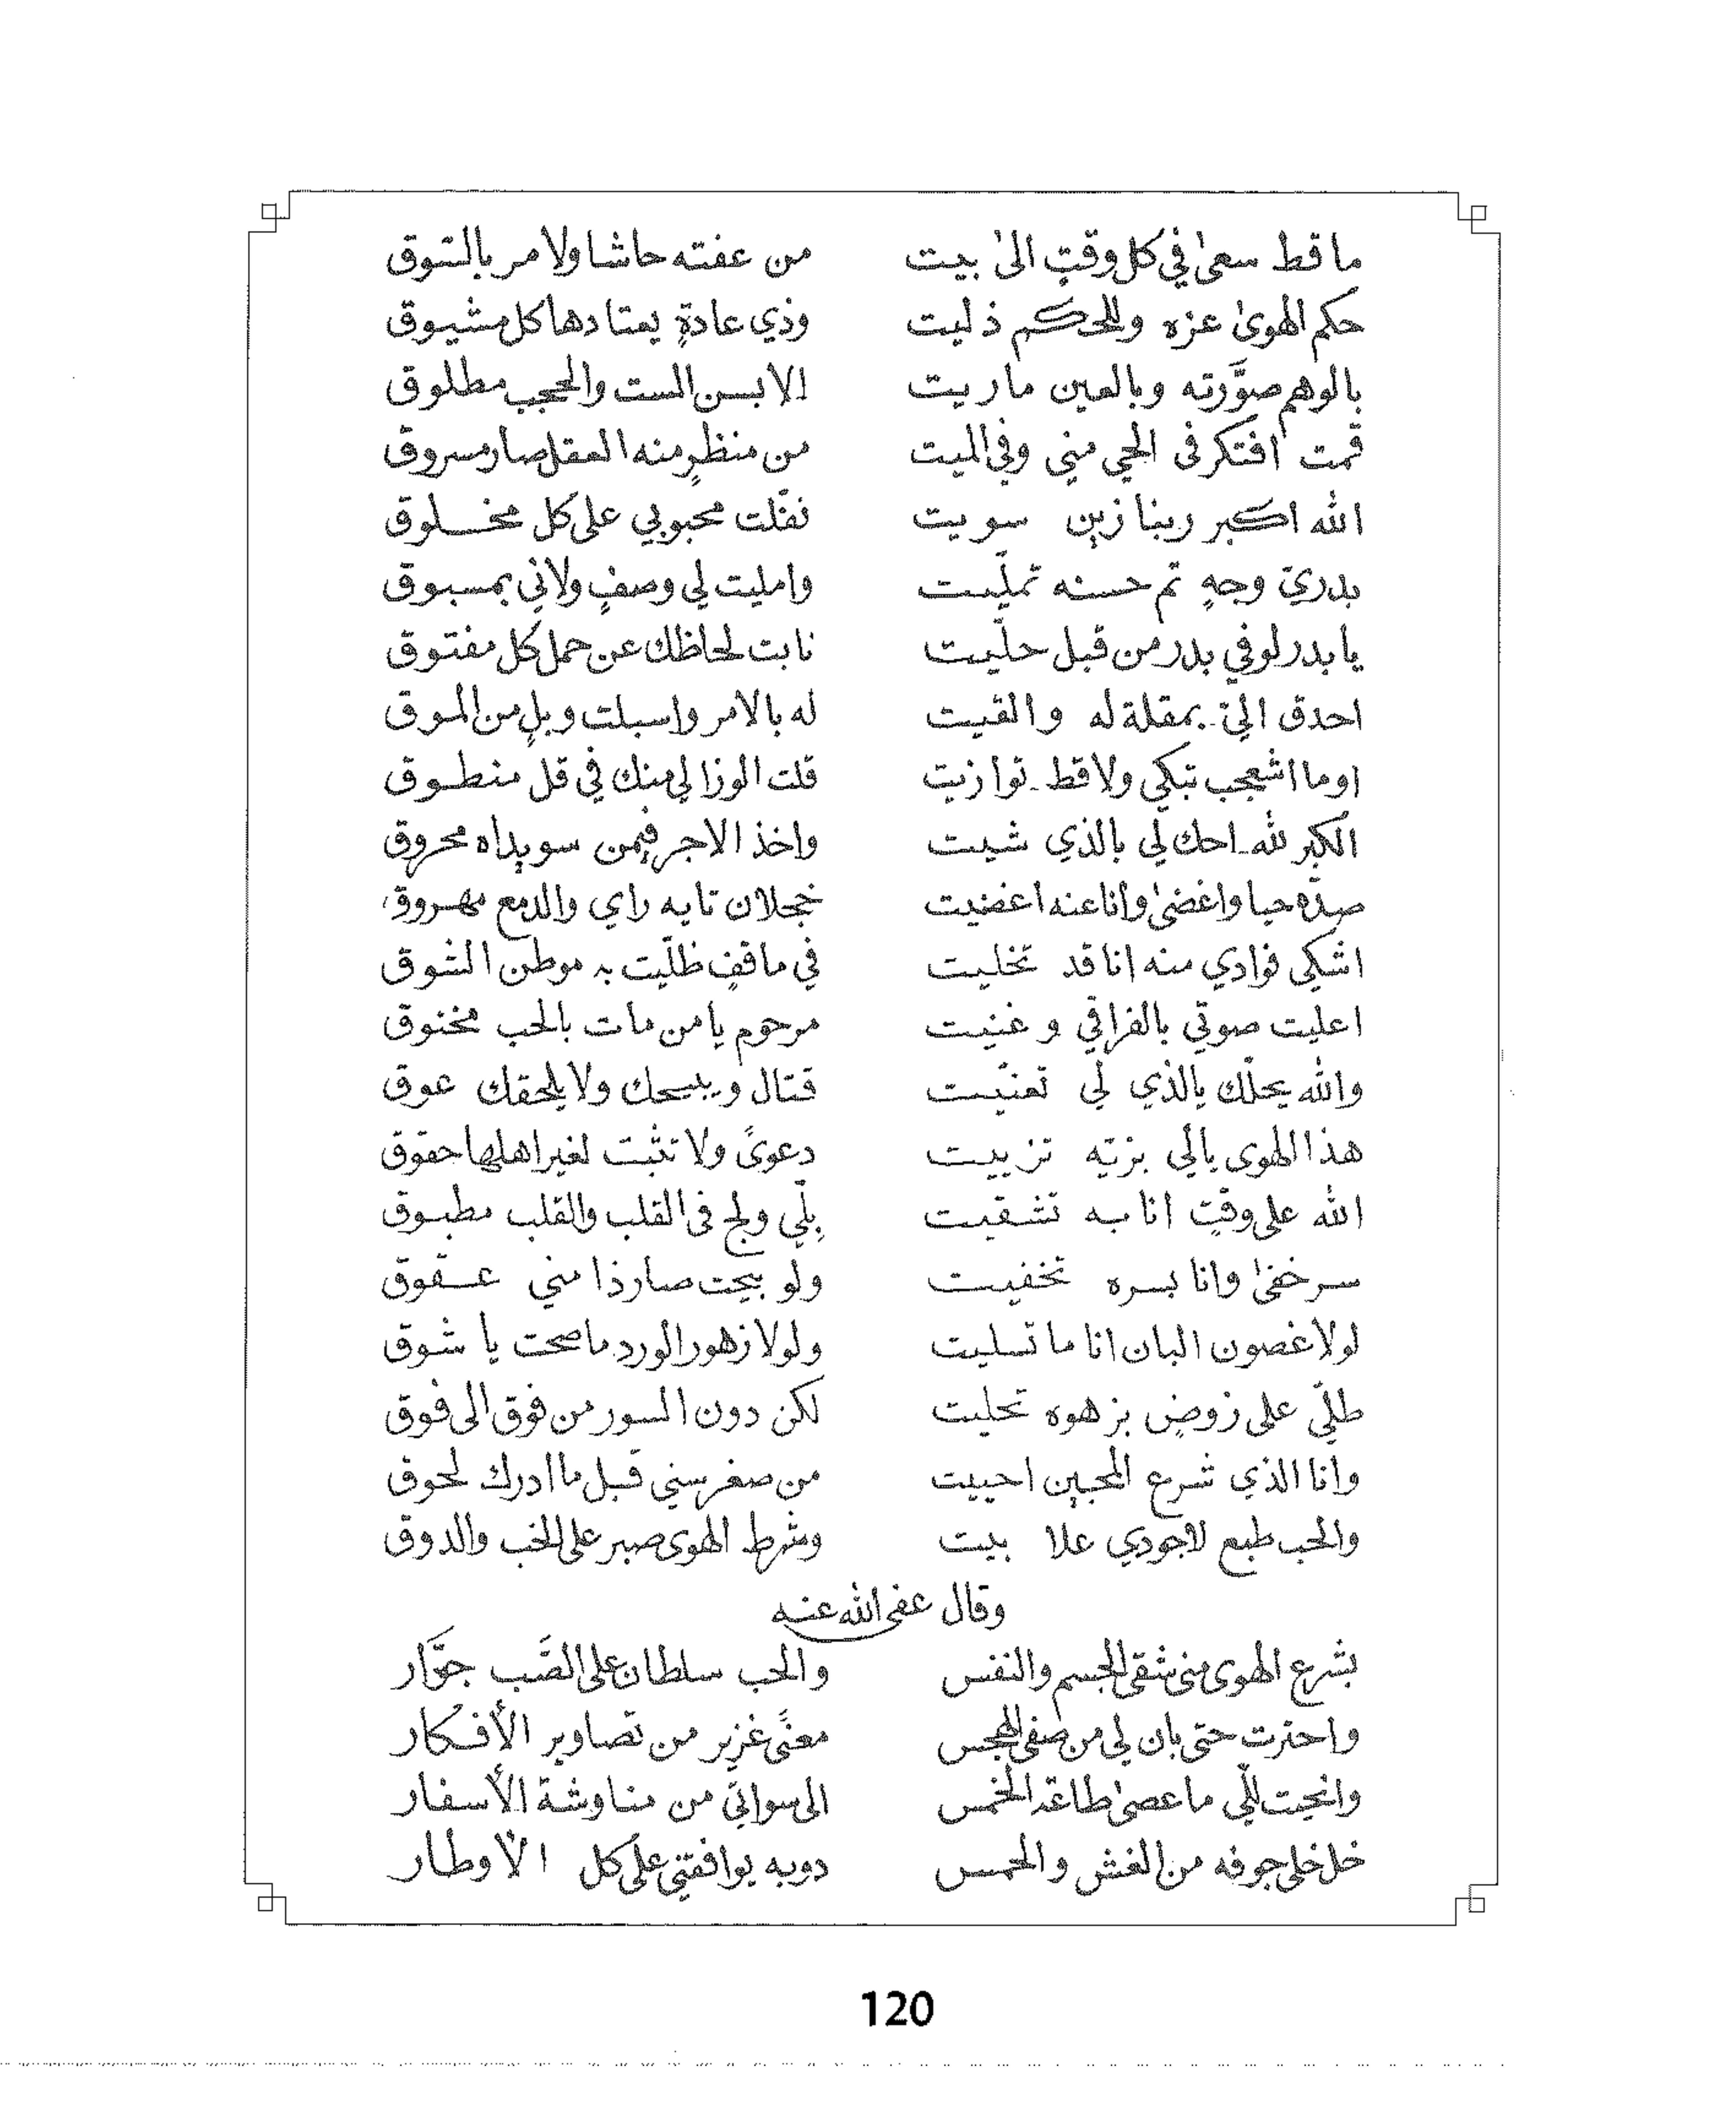 ما قط سعىٰ في كل وقتٍ الىٰ بيت من عفته حاشا ولا مر بالتوق
حكم الهوىٰ عزه وللحكم ذليت وذي عادةٍ يعتادها كل مشيوق
بالوهم صوَّرته وبالعين ماريت الا بسن الست والحجب مطلوق
قمت افتكر فى الحي مني وفي الميت من منظرٍ منه العقل صار مسروق
الله اكبر ربنا زين سويت نفّلت محبوبي على كل مخلوق
بدريّ وجهٍ تم حسنه تملّيت وامليت لي وصفٍ ولاني بمسبوق
يا بدر لو في بدر من قبل حلّيت نابت لحاظك عن حمل كل مفتوق
احدق اليّ بمقلة له والقيت له بالامر واسبلت وبلٍ من الموق
اوما اشعجب تبكي ولا قط توازيت قلت الوزا لي منك في قل منطوق
الكبر لله احك لي بالذي شيت واخذ الاجر فيمن سويداه محروق
صدّه حيا واغضىٰ وانا عنه اغضيت خجلان تايه راي والدمع مهروق
اشكي فوادي منه انا قد تخليت في ماقفٍ ظلّيت به موطن الشوق
اعليت صوتي بالفراقي وغنيت مرحوم يا من مات بالحب مخنوق
والله يحلّك يالذي لي تعنّيت قتال ويبيحك ولا يلحقك عوق
هذا الهوى يالي بزيّه تزييت دعوىً ولا تثبت لغير اهلها حقوق
الله على وقتٍ انا به تشقيت بِلّي ولج فى القلب والقلب مطبوق
سر خفىٰ وانا بسره تخفيت ولو بيحت صار ذا مني عقوق
لولا غصون البان انا ما تسليت ولولا زهور الورد ما صحت يا شوق
طلّي على روضٍ بزهوه تحليت لكن دون السور من فوق الى فوق
وانا الذي شرع المحبين احييت من صغر سني قبل ما ادرك لحوق
والحب طبع لاجودي علا بيت وشرط الهوى صبر على الخب والدوق
وقال عفى الله عنه
بشرع الهوى منى شقى الجسم والنفس والحب سلطان على الصَّب جوَّار
واحترت حتى بان لي من صفى الهجس معنًى غزير من تصاوير الأفكار
وانحيت للّي ما عصىٰ طاعة الخمس الى سواتي من مناوشة الأسفار
خل خلى جوفه من الغش والحمس دوبه يوافقني على كل الأوطار
120